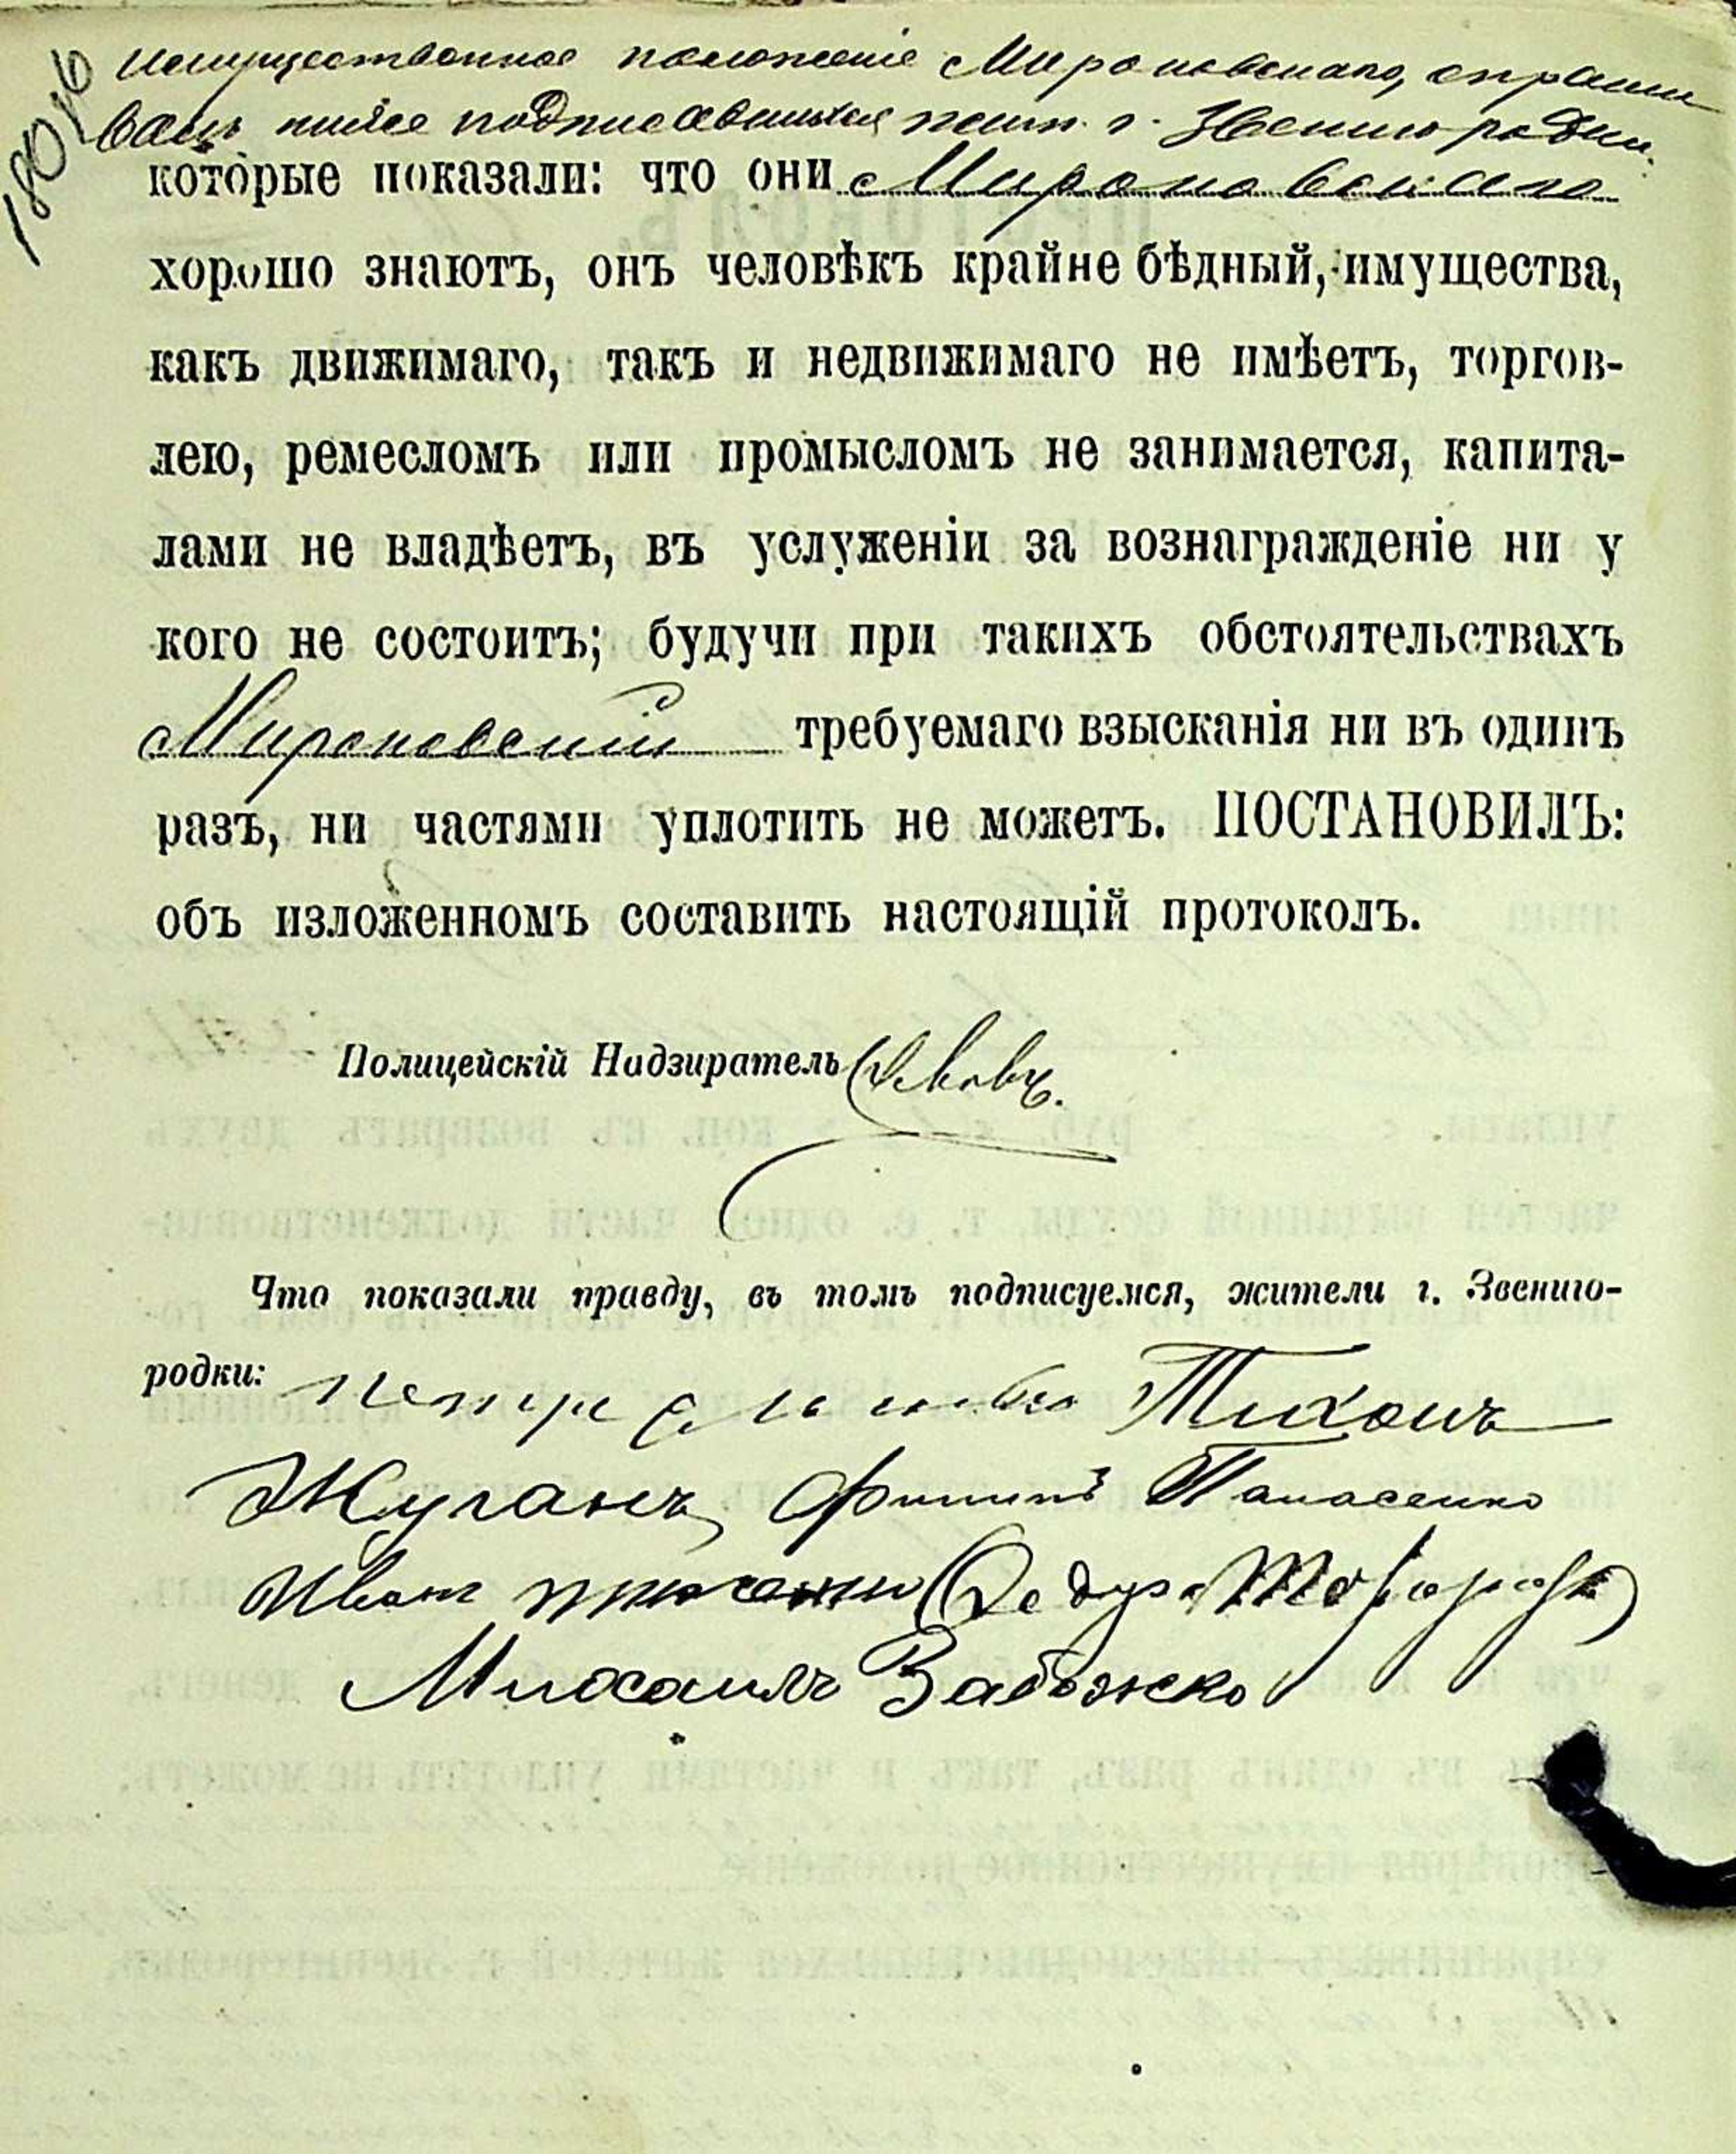 имущественное положеніе Мироновскаго, спраши
валъ ниже подписавшихся жит. г. Звенигородки.
которые показали: что они Мироновскаго
хорошо знаютъ, онъ человѣкъ крайне бѣдный, имущества,
какъ движимаго, такъ и недвижимаго не имѣетъ, торгов-
лею, ремесломъ или промысломъ не занимается, капита-
лами не владѣетъ, въ услуженіи за вознагражденіе ни у
кого не состоитъ; будучи при такихъ обстоятельствахъ
Мироновскій требуемаго взысканія ни въ одинъ
разъ, ни частями уплотить не можетъ. ПОСТАНОВИЛЪ:
объ изложенномъ составить настоящій протоколъ.
Полицейскій Надзиратель
Что показали правду, въ томъ подписуемся, жители г. Звениго-
родки: Петро Тихонъ
Жуганъ, Филипъ Панасенко
Иванъ
Михаилъ Забожко